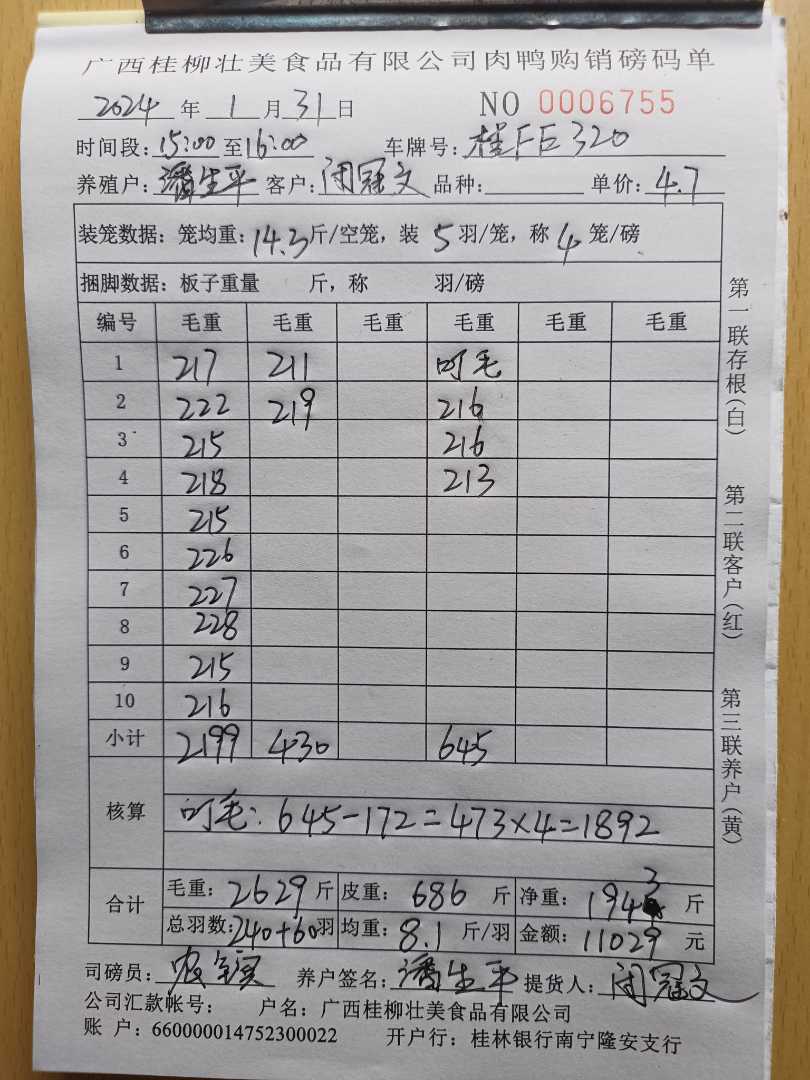 广西桂柳壮美食品有限公司肉鸭购销磅码单
2024 年 1 月 31 日 NO 0006755
时间段：15:00 至 16:00 车牌号：桂FE320
养殖户：潘生平 客户：闭冠文 品种： 单价：4.7
装笼数据：笼均重：14.3斤/空笼，装 5 羽/笼，称 4 笼/磅
捆脚数据：板子重量 斤，称 羽/磅
编号 毛重 毛重 毛重 毛重 毛重 毛重
1 217 211 叼毛
2 222 219 216
3 215 216
4 218 213
5 215
6 226
7 227
8 228
9 215
10 216
小计 2199 430 645
核算 叼毛：645-172=473×4=1892
合计 毛重：2629 斤 皮重：686 斤 净重：1943 斤
总羽数：240+60羽 均重：8.1 斤/羽 金额：11029 元
司磅员： 养户签名：潘生平 提货人：闭冠文
公司汇款帐号： 户名：广西桂柳壮美食品有限公司
账 户：660000014752300022 开户行：桂林银行南宁隆安支行
第一联存根（白）
第二联客户（红）
第三联养户（黄）